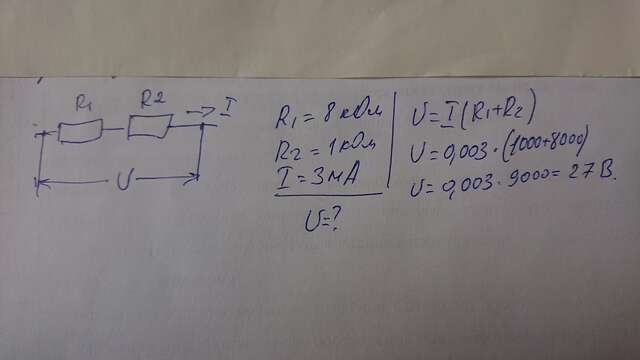 R1 R2 → I
U
R1 = 8 кОм
R2 = 1 кОм
I = 3 мА
U = ?
U = I (R1 + R2)
U = 0,003 · (1000 + 8000)
U = 0,003 · 9000 = 27 В.